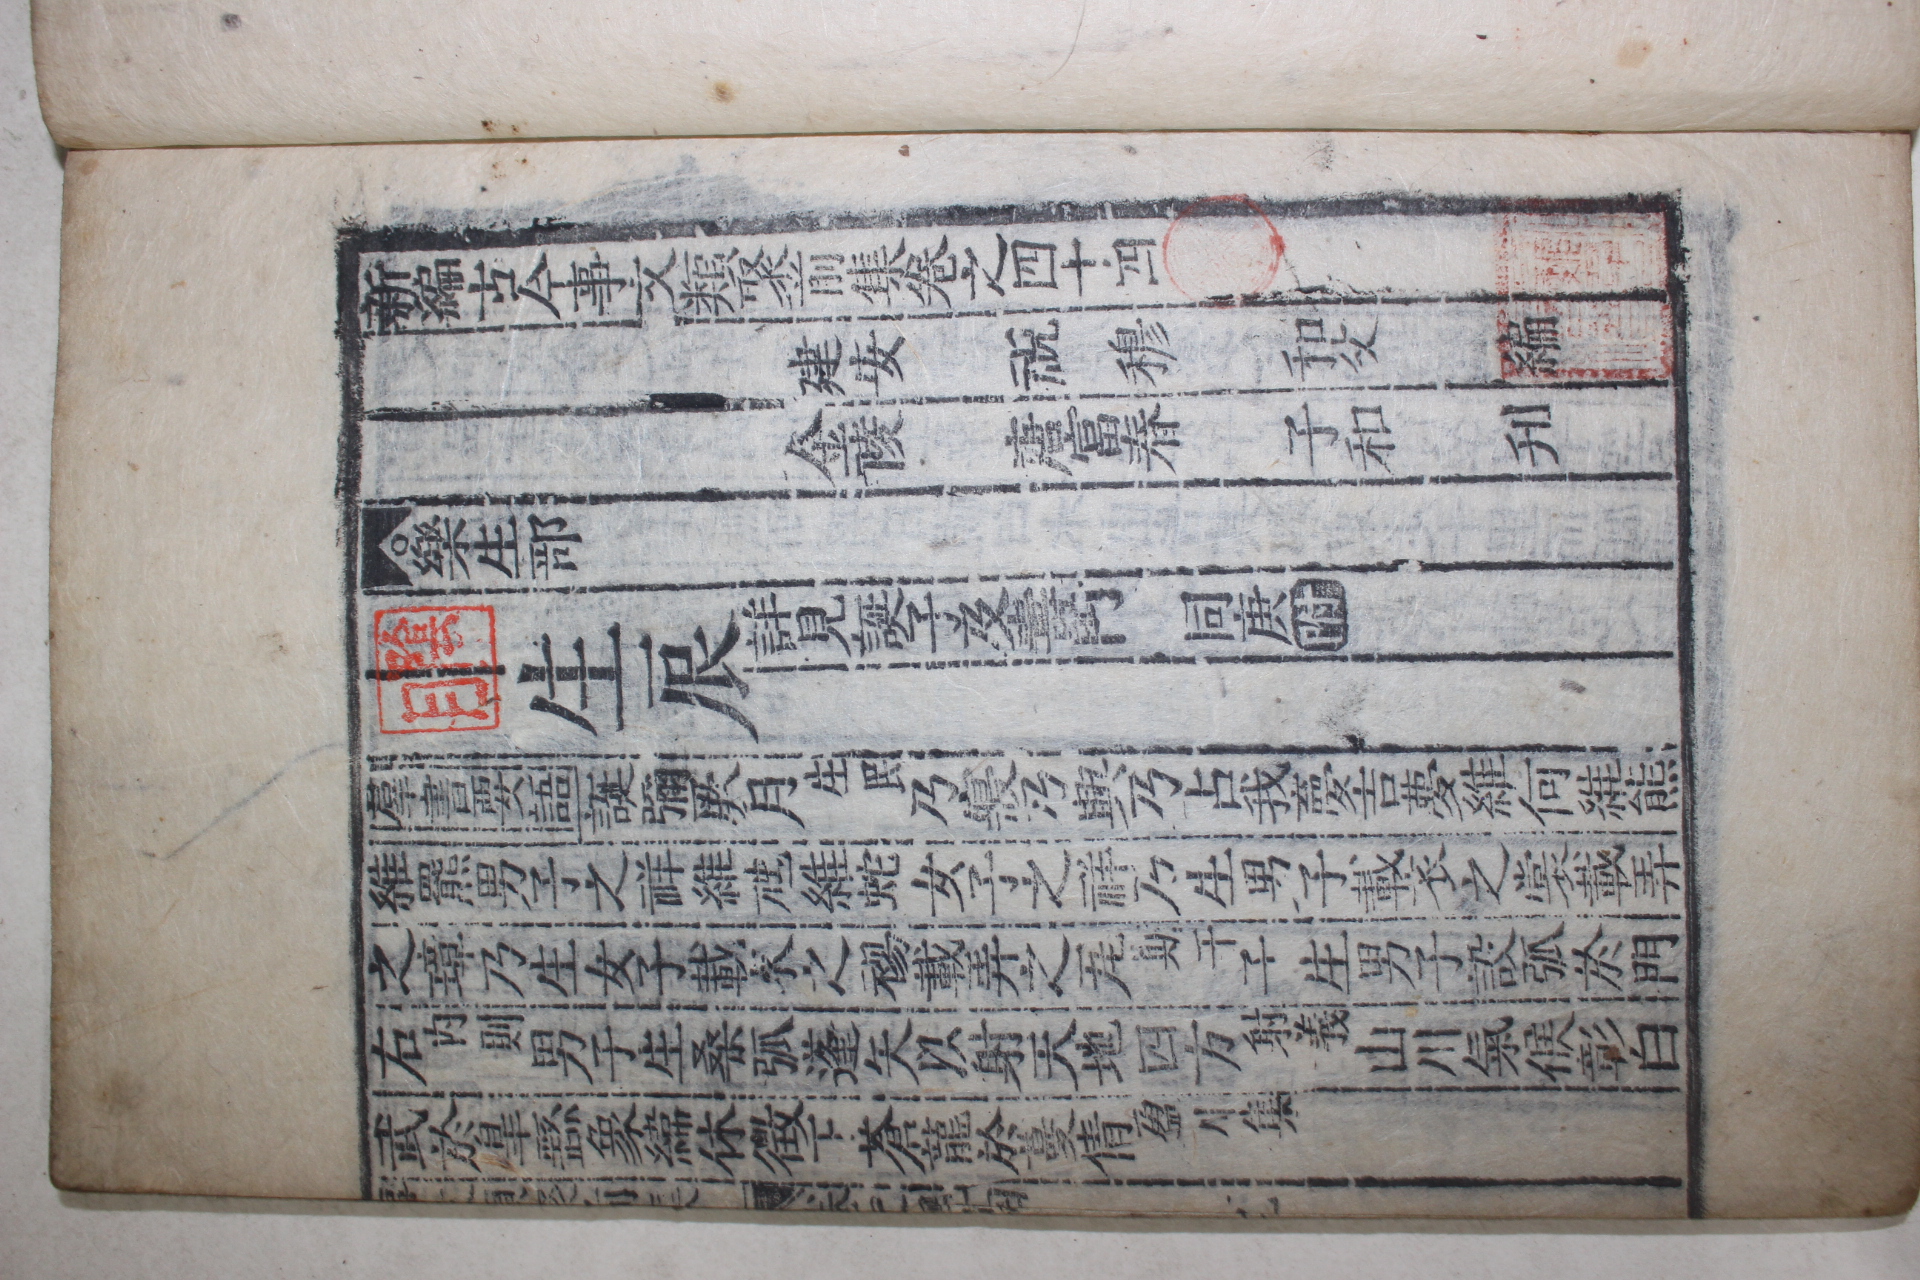 新編古今事文類聚前集卷之四十四
建安 祝穆 和父 編
金陵 唐富春 子和 刋
樂生部
生辰 詳見誕子及壽門 同庚附
羣書要語 誕彌厥月生民乃寢乃興乃占我夢吉夢維何維熊
維羆男子之祥維虺維蛇女子之祥乃生男子載衣之裳載弄
之璋乃生女子載衣之裼載弄之瓦斯干子生男子設弧於門
右內則男子生桑弧蓬矢以射天地四方射義山川氣候彰白
武於皐繇象緯休徵下蒼龍於蔓倩盈川集
陰月